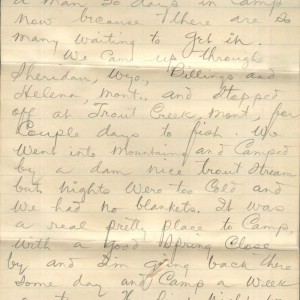 a man 30 days in Camp
now because there are so
many waiting to get in.
We Came up through
Sheridan, Wyo, Billings and
Helena, Mont. and stopped
off at Trout Creek, Mont, for
Couple days to fish. We
went into Mountains and Camped
by a dam nice trout Stream
but nights were too Cold and
we had no blankets. It was
a real pretty place to Camp,
with a good Spring Close
by and I'm going back there
Some day and Camp a Week